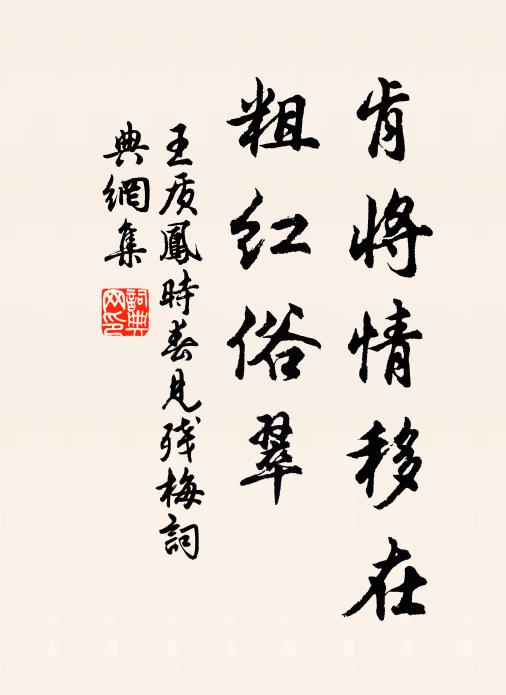 肯将情移在
粗红俗翠
王质鳳時春見残梅詞
典網集
詞典網印